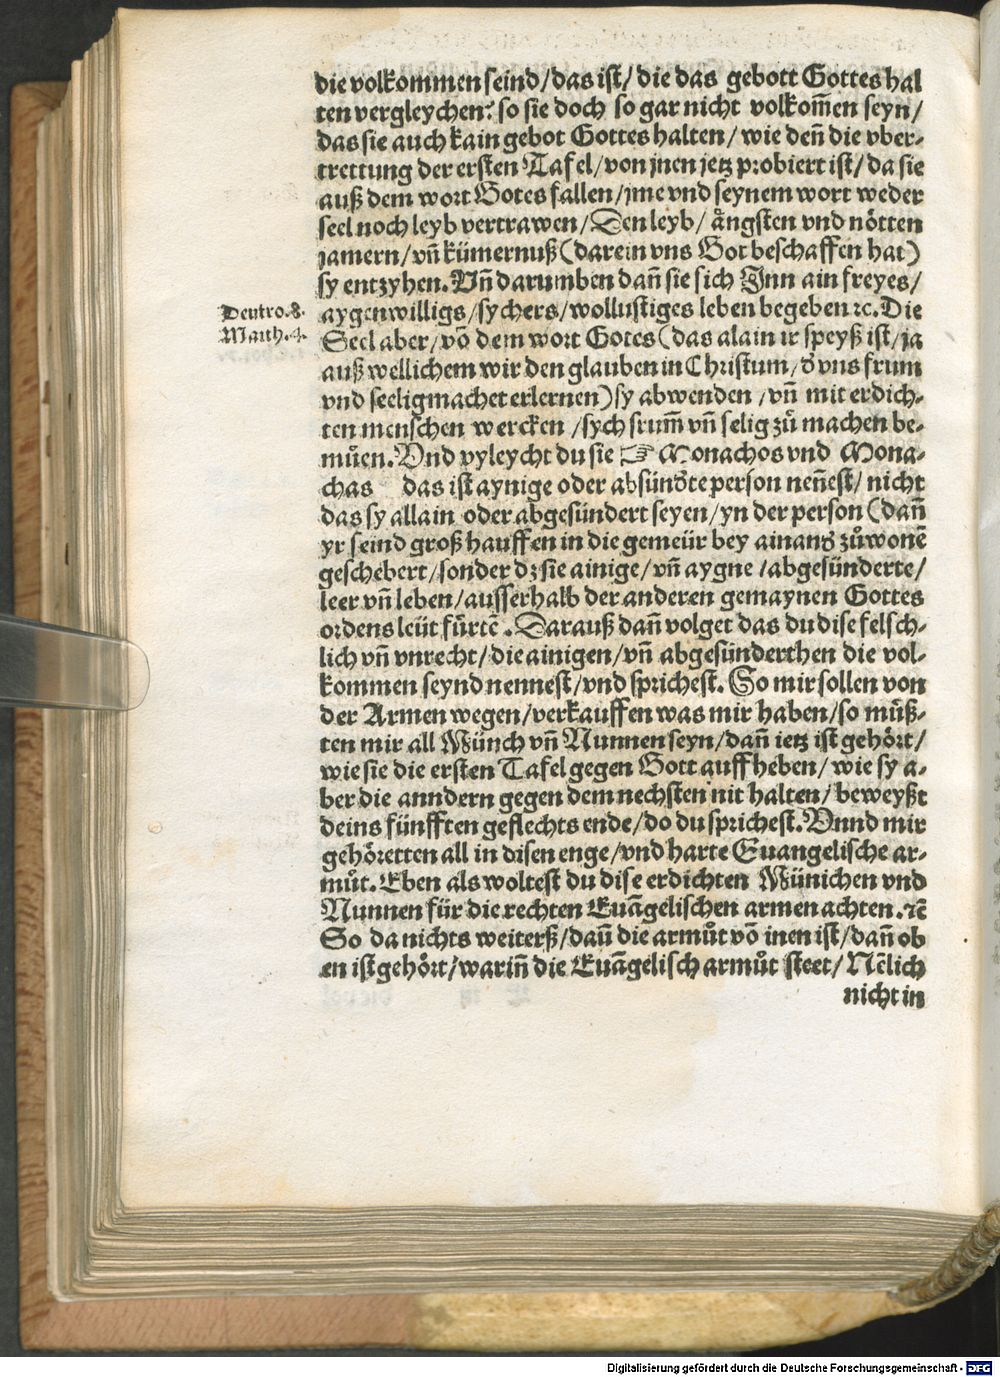 die volkommen seind/das ist/ die das gebott Gottes hal
ten vergleychen? so sie doch so gar nicht volkom̃en seyn/
das sie auch kain gebot Gottes halten/ wie deñ die vber-
trettung der ersten Tafel/von jnen jetz probiert ist/da sie
auß dem wort Gotes fallen/jme vnd seynem wort weder
seel noch leyb vertrawen/Den leyb/ ångsten vnd nötten
jamern/vñ kümernuß(darein vns Got beschaffen hat)
sy entzyhen. Vñ darumben dañ sie sich Jnn ain freyes/
Deutro.8. aygenwilligs/sychers/wollustiges leben begeben ꝛc. Die
Math.4. Seel aber/võ dem wort Gotes(das alain ir speyß ist/ja
auß wellichem wir den glauben in Christum/ď vns frum
vnd seelig machet erlernen)sy abwenden/vñ mit erdich-
ten menschen wercken/sych frum̃ vñ selig zů machen be-
můen. Vnd vyleycht du sie ☞ Monachos vnd Mona-
chas das ist aynige oder absünďte person neñest/ nicht
das sy allain oder abgesündert seyen/yn der person(dañ
yr seind groß hauffen in die gemeür bey ainanď zůwonẽ
geschebert/sonder dz sie ainige/vñ aygne/abgesünderte/
leer vñ leben/ausserhalb der anderen gemaynen Gottes
ordens leüt fürtẽ. Darauß dañ volget das du dise felsch-
lich vñ vnrecht/die ainigen/vñ abgesünderthen die vol-
kommen seynd nennest/vnd sprichest. So mir sollen von
der Armen wegen/verkauffen was mir haben/so můß-
ten mir all Münch vñ Nunnen seyn/dañ ietz ist gehört/
wie sie die ersten Tafel gegen Gott auffheben/wie sy a-
ber die anndern gegen dem nechsten nit halten/beweyßt
deins fünfften geflechts ende/do du sprichest. Vnnd mir
gehöretten all in disen enge/vnd harte Euangelische ar-
můt. Eben als woltest du dise erdichten Münichen vnd
Nunnen für die rechten Euãgelischen armen achten. ꝛc̃
So da nichts weiterß/dañ die armůt võ inen ist/dañ ob
en ist gehört/wariñ die Euãgelisch armůt steet/Nẽlich
nicht in
Digitalisierung gefördert durch die Deutsche Forschungsgemeinschaft - DFG